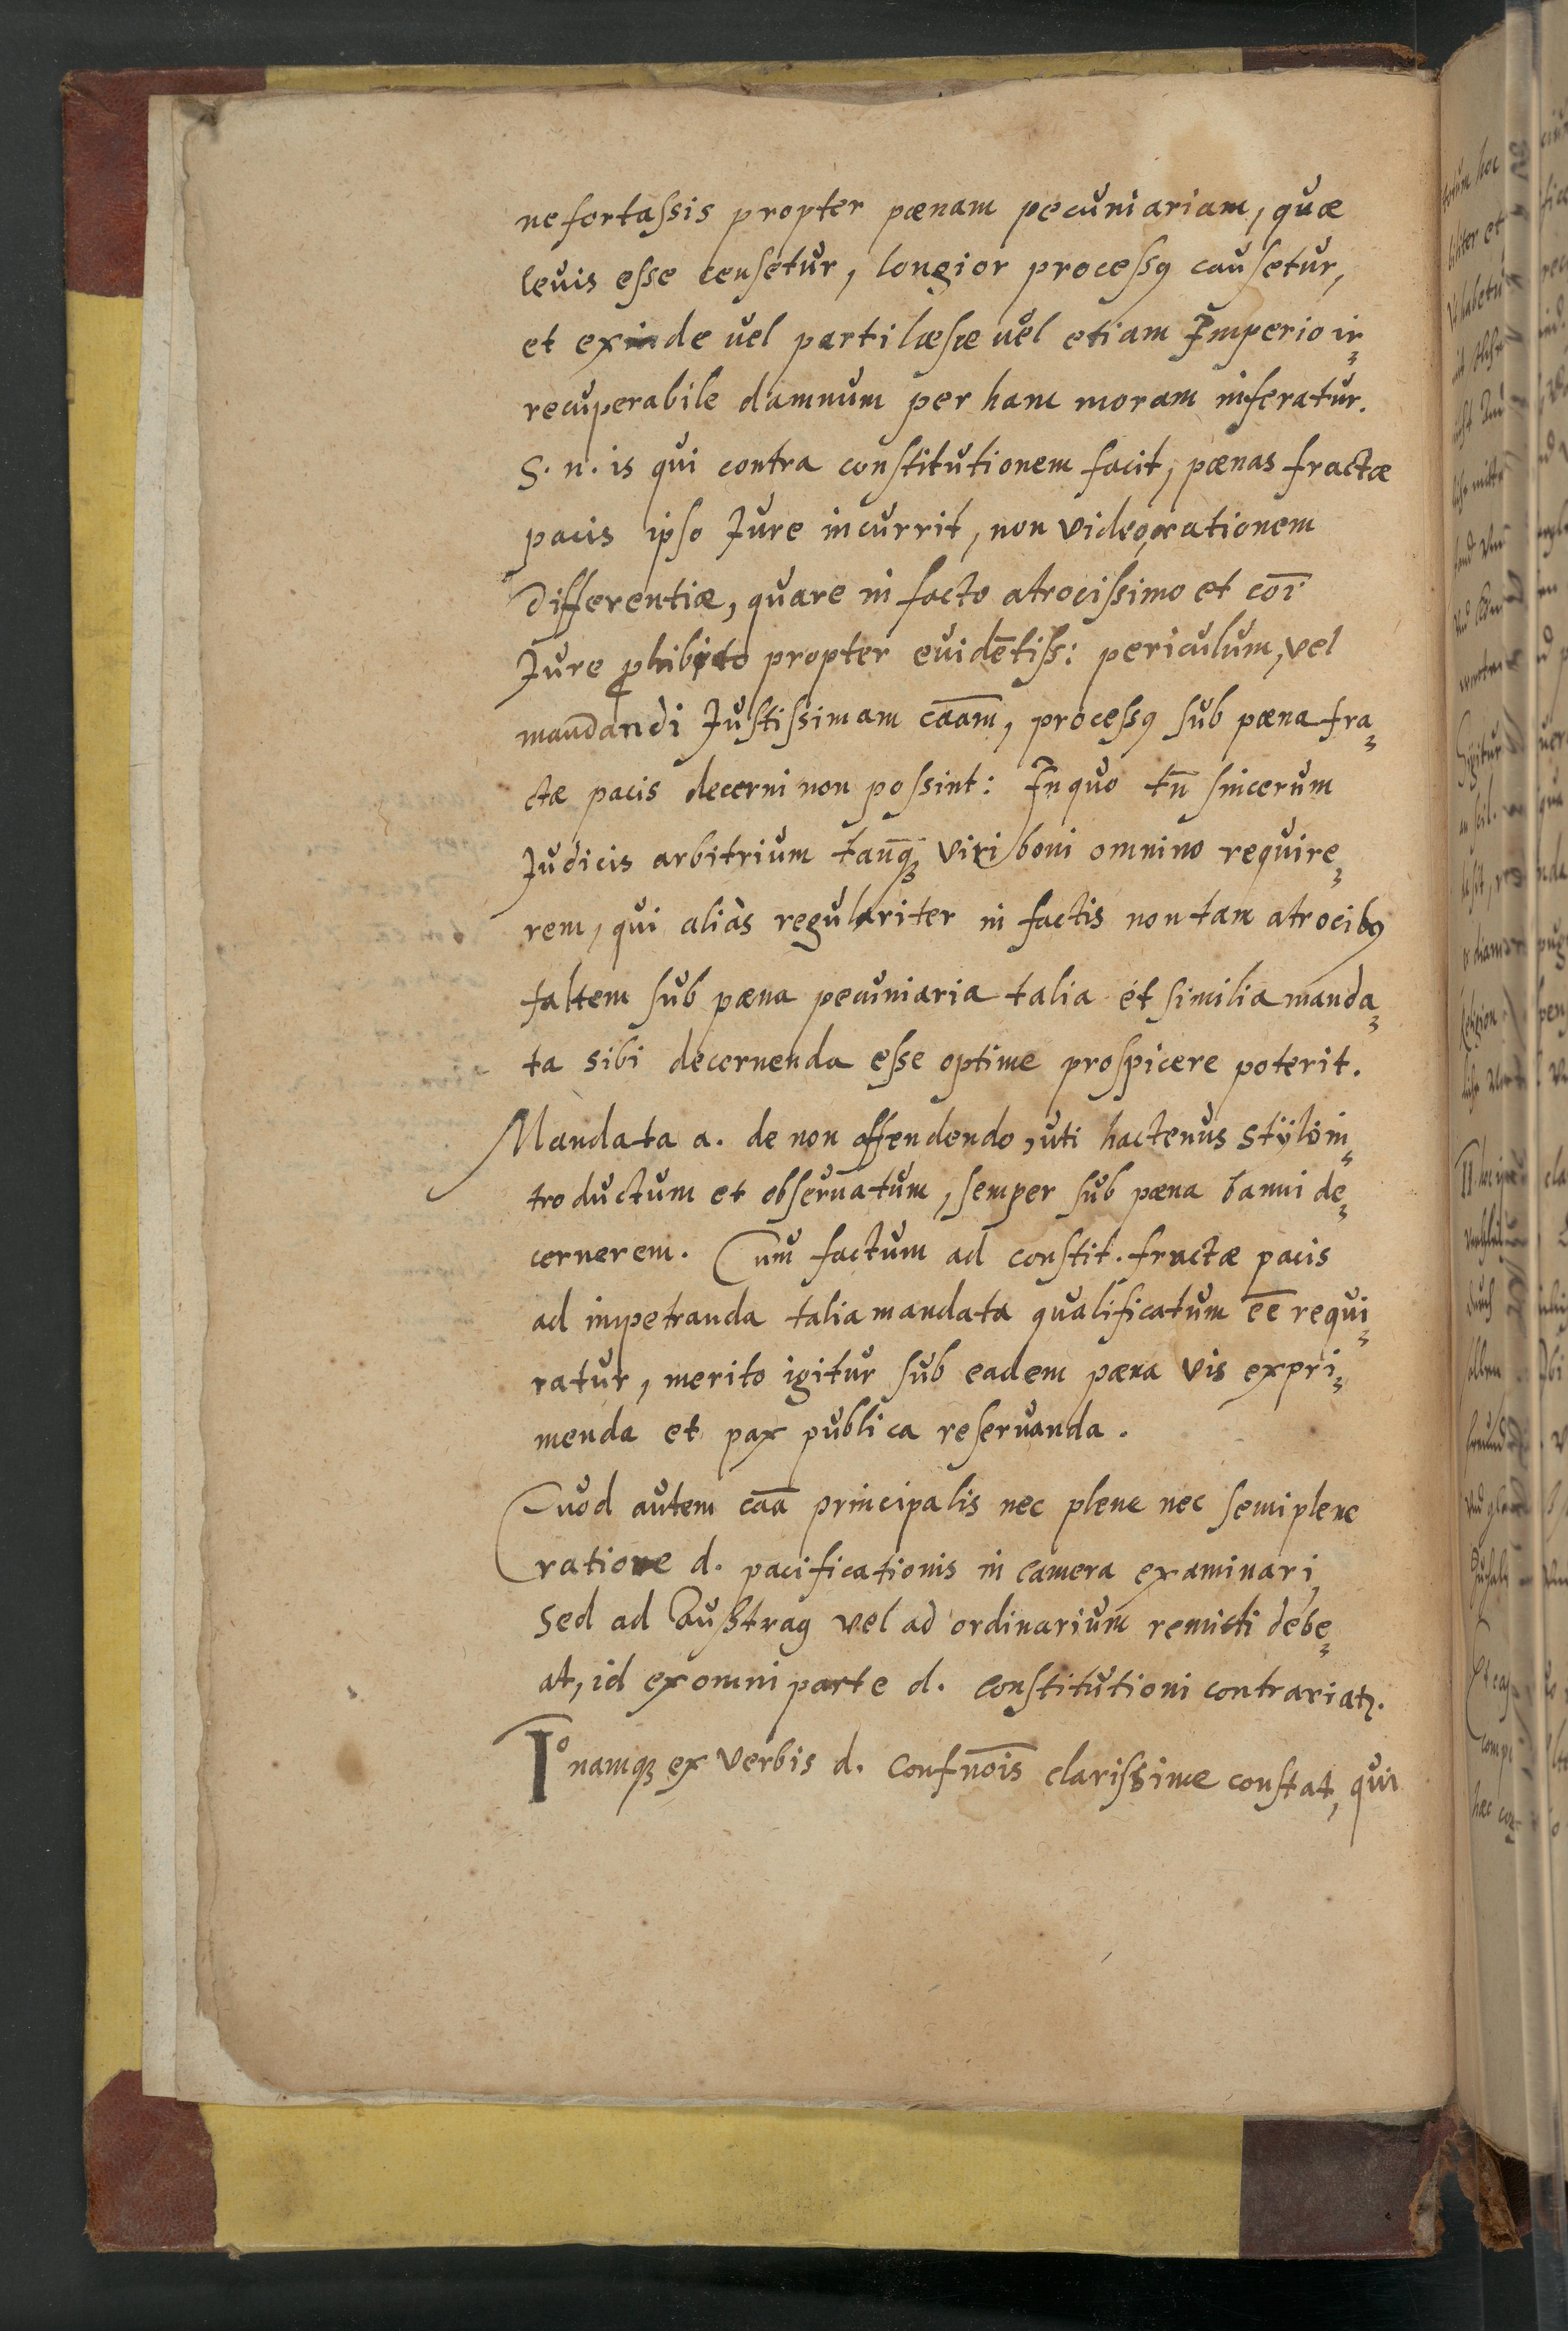 ne fortaſsis propter pœnam pecuniariam, quæ
leuis eſse cenſetur, longior proceſsꝰ cauſetur,
et exinde uel parti læſæ uel etiam Imperio ir⸗
recuperabile damnum per hanc moram inferatur.
S. n. is qui contra conſtitutionem facit, pœnas fractæ
pacis ipso Jure incurrit, non video rationem
differentiæ, quare in facto atrociſsimo et cōi
Jure ꝓhibito propter euidētiſs: periculum, vel
mandandi Juſtiſsimam cāam, proceſsꝰ ſub pœna fra⸗
ctæ pacis decerni non poſsint: In quo tn̄ ſincerum
Judicis arbitrium tanq̄ꝫ viri boni omnino require⸗
rem, qui aliàs regulariter in factis non tam atrocibꝰ
saltem ſub pœna pecuniaria talia et similia manda⸗
ta sibi decernenda eſse optime proſpicere poterit.
Mandata a. de non offendendo, uti hactenus stÿlo in⸗
troductum et obſeruatum, ſemper ſub pœna banni de⸗
cernerem. Cum factum ad conſtit. fractæ pacis
ad impetranda talia mandata qualificatum ēē requi⸗
ratur, merito igitur ſub eadem pœna vis expri⸗
menda et pax publica reſeruanda.
Quod autem cāā principalis nec plene nec ſemiplene
ratione d. pacificationis in camera examinari,
sed ad Auſtrag vel ad ordinarium remitti debe⸗
at, id ex omni parte d. conſtitutioni contrariatꝛ.
Iº namqꝫ ex verbis d. Conſtn̄ois clariſsime conſtat, qui